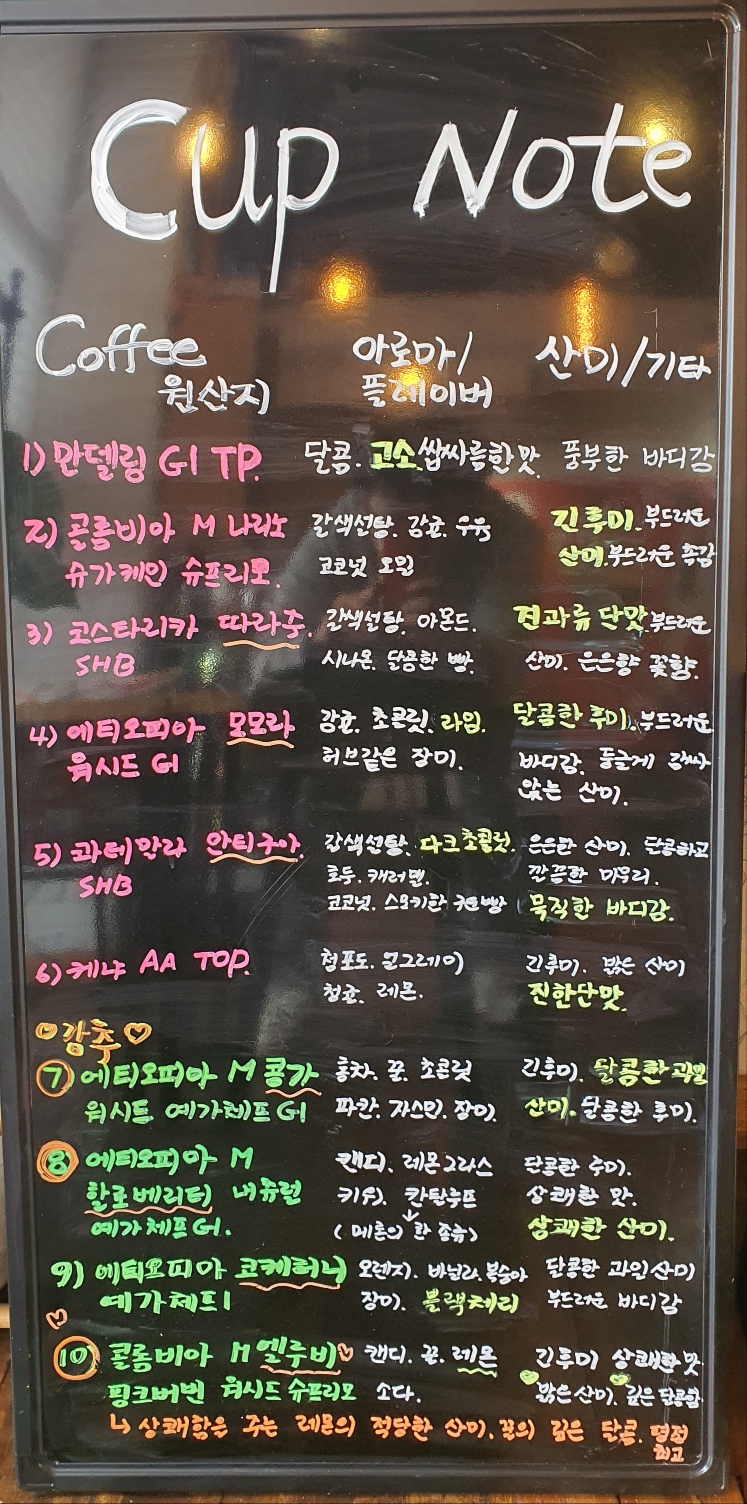 Cup Note
Coffee 원산지
아로마/플레이버
산미/기타
1) 만델링 G1 TP. 달콤. 고소 쌉싸름한 맛 풍부한 바디감
2) 콜롬비아 M 나리뇨 갈색설탕. 감귤. 우유 긴후미. 부드러운
슈가케인 슈프리모. 코코넛 오일 산미. 부드러운 촉감
3) 코스타리카 따라주. 갈색설탕. 아몬드. 견과류 단맛 부드러운
SHB 시나몬. 달콤한 빵. 산미. 은은향 꽃향.
4) 에티오피아 모모라 감귤. 초콜릿. 라임. 달콤한 후미. 부드러운
워시드 G1 허브같은 장미. 바디감. 둥글게 감싸
않는 산미.
5) 과테말라 안티구아. 갈색설탕. 다크초콜릿. 은은한 산미. 달콤하고
SHB 호두. 캐러멜. 깐끔한 마무리.
코코넛. 스모키한 구운빵 묵직한 바디감.
6) 케냐 AA TOP. 청포도. 얼그레이 긴후미. 밝은 산미
청귤. 레몬. 진한단맛
강추
7) 에티오피아 M 콩가 홍차. 꿀. 초콜릿 긴후미. 달콤한 과일
워시드 예가체프 G1 피칸. 자스민. 장미. 산미. 달콤한 후미.
8) 에티오피아 M 캔디. 레몬그라스 달콤한 후미.
할로베리티 내추럴 키위. 칸탈루프 상쾌한 맛.
예가체프 G1. (메론의 한 종류) 상쾌한 산미.
9) 에티오피아 코케허니 오렌지. 바닐라. 복숭아 달콤한 과일 산미
예가체프1 장미. 블랙체리 부드러운 바디감
10) 콜롬비아 M 엘루비 캔디. 꿀. 레몬 긴후미 상쾌한 맛
핑크버번 워시드 슈프리모 소다. 밝은산미. 깊은 달콤함
↳ 상쾌함을 주는 레몬의 적당한 산미. 꿀의 깊은 달콤. 평점
최고